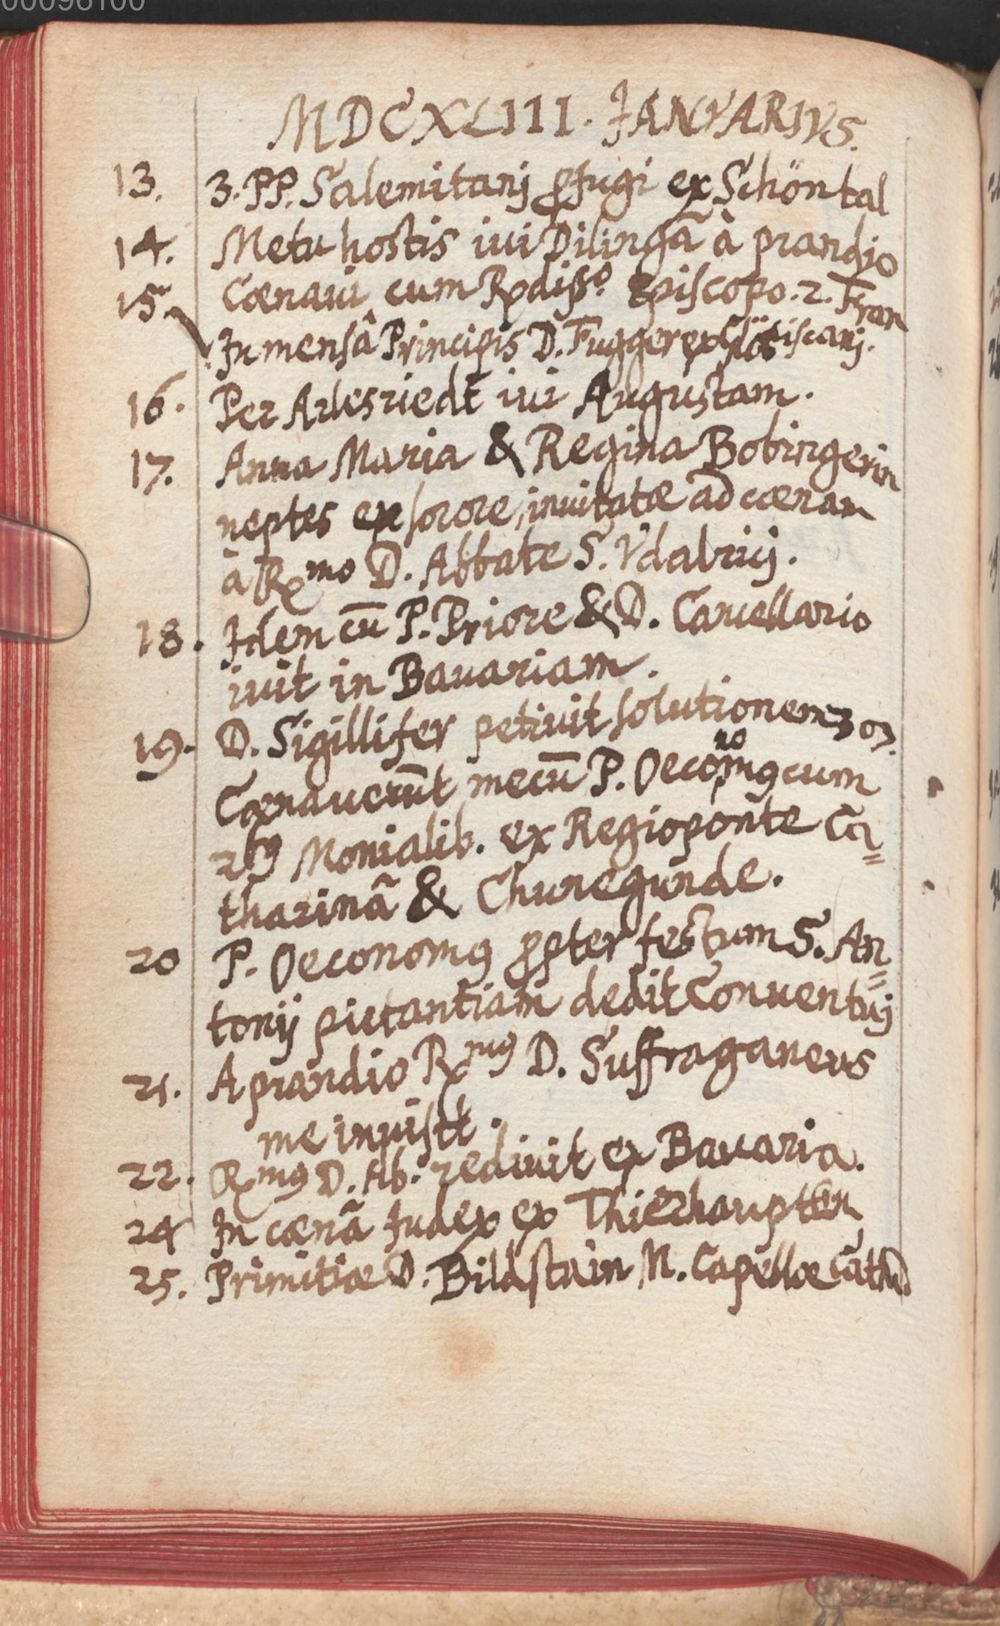 00096100
MDCXLIII. JANVARIVS.
13. 3. PP. Salemitanj ꝓfugi ex Schöntal
14. Metu hostis iui Dilingã à prandio
15. Cœnaui cum Rdiss.º Episcopo. 2. Fran
In mensâ Principis D. Fugger ex Glöt iscanj.
16. Per Adesriedt iui Augustam.
17. Anna Maria & Regina Bobingerin
neptes ex sorore, inuitatæ ad cœnam
à Rmo D. Abbate S. Vdalricj.
18. Idem cũ P. Priore & D. Cancellario
iuit in Bauariam.
19. D. Sigillifer petiuit solutionem
Cœnauerũt mecũ P. Oecõmꝰ cum
no
2bꝰ Monialib. ex Regioponte Ca=
tharinã & Chunegunde.
20 P. Oeconomꝰ ꝓpter festum S. An=
tonij pictantiam dedit Conuentuj
21. A prandio Rmꝰ D. Suffraganeus
me inuisit.
22. Rmꝰ D. Ab. rediuit ex Bauaria.
24 In cœnã Iudex ex Thierhauptten
25. Primitiæ D. Bildstain M. Capellæ Cath.